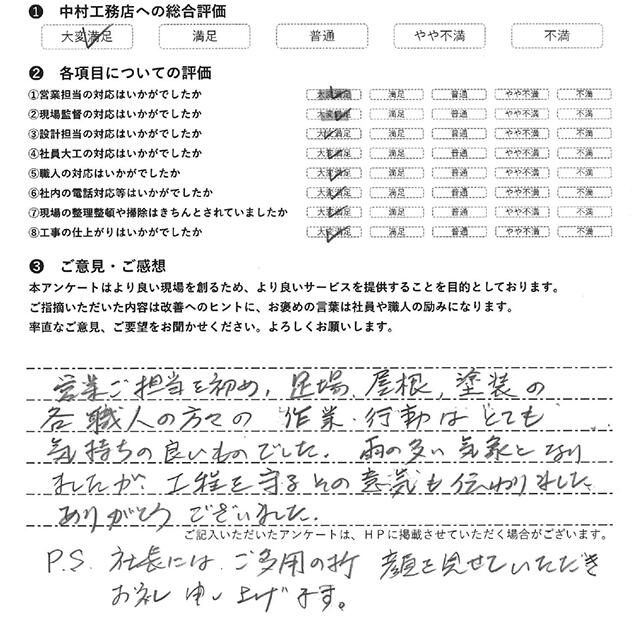 ❶ 中村工務店への総合評価
大変満足 満足 普通 やや不満 不満
❷ 各項目についての評価
①営業担当の対応はいかがでしたか 大変満足 満足 普通 やや不満 不満
②現場監督の対応はいかがでしたか 大変満足 満足 普通 やや不満 不満
③設計担当の対応はいかがでしたか 大変満足 満足 普通 やや不満 不満
④社員大工の対応はいかがでしたか 大変満足 満足 普通 やや不満 不満
⑤職人の対応はいかがでしたか 大変満足 満足 普通 やや不満 不満
⑥社内の電話対応等はいかがでしたか 大変満足 満足 普通 やや不満 不満
⑦現場の整理整頓や掃除はきちんとされていましたか 大変満足 満足 普通 やや不満 不満
⑧工事の仕上がりはいかがでしたか 大変満足 満足 普通 やや不満 不満
❸ ご意見・ご感想
本アンケートはより良い現場を創るため、より良いサービスを提供することを目的としております。
ご指摘いただいた内容は改善へのヒントに、お褒めの言葉は社員や職人の励みになります。
率直なご意見、ご要望をお聞かせください。よろしくお願いします。
営業ご担当を初め、足場、屋根、塗装の
各職人の方々の 作業・行動はとても
気持ちの良いものでした。雨の多い気象となり
ましたが、工程を守るその意気も伝わりました
ありがとうございました。
ご記入いただいたアンケートは、HPに掲載させていただく場合がございます。
P.S. 社長には、ご多用の折 顔を見せていただき
お礼申し上げます。